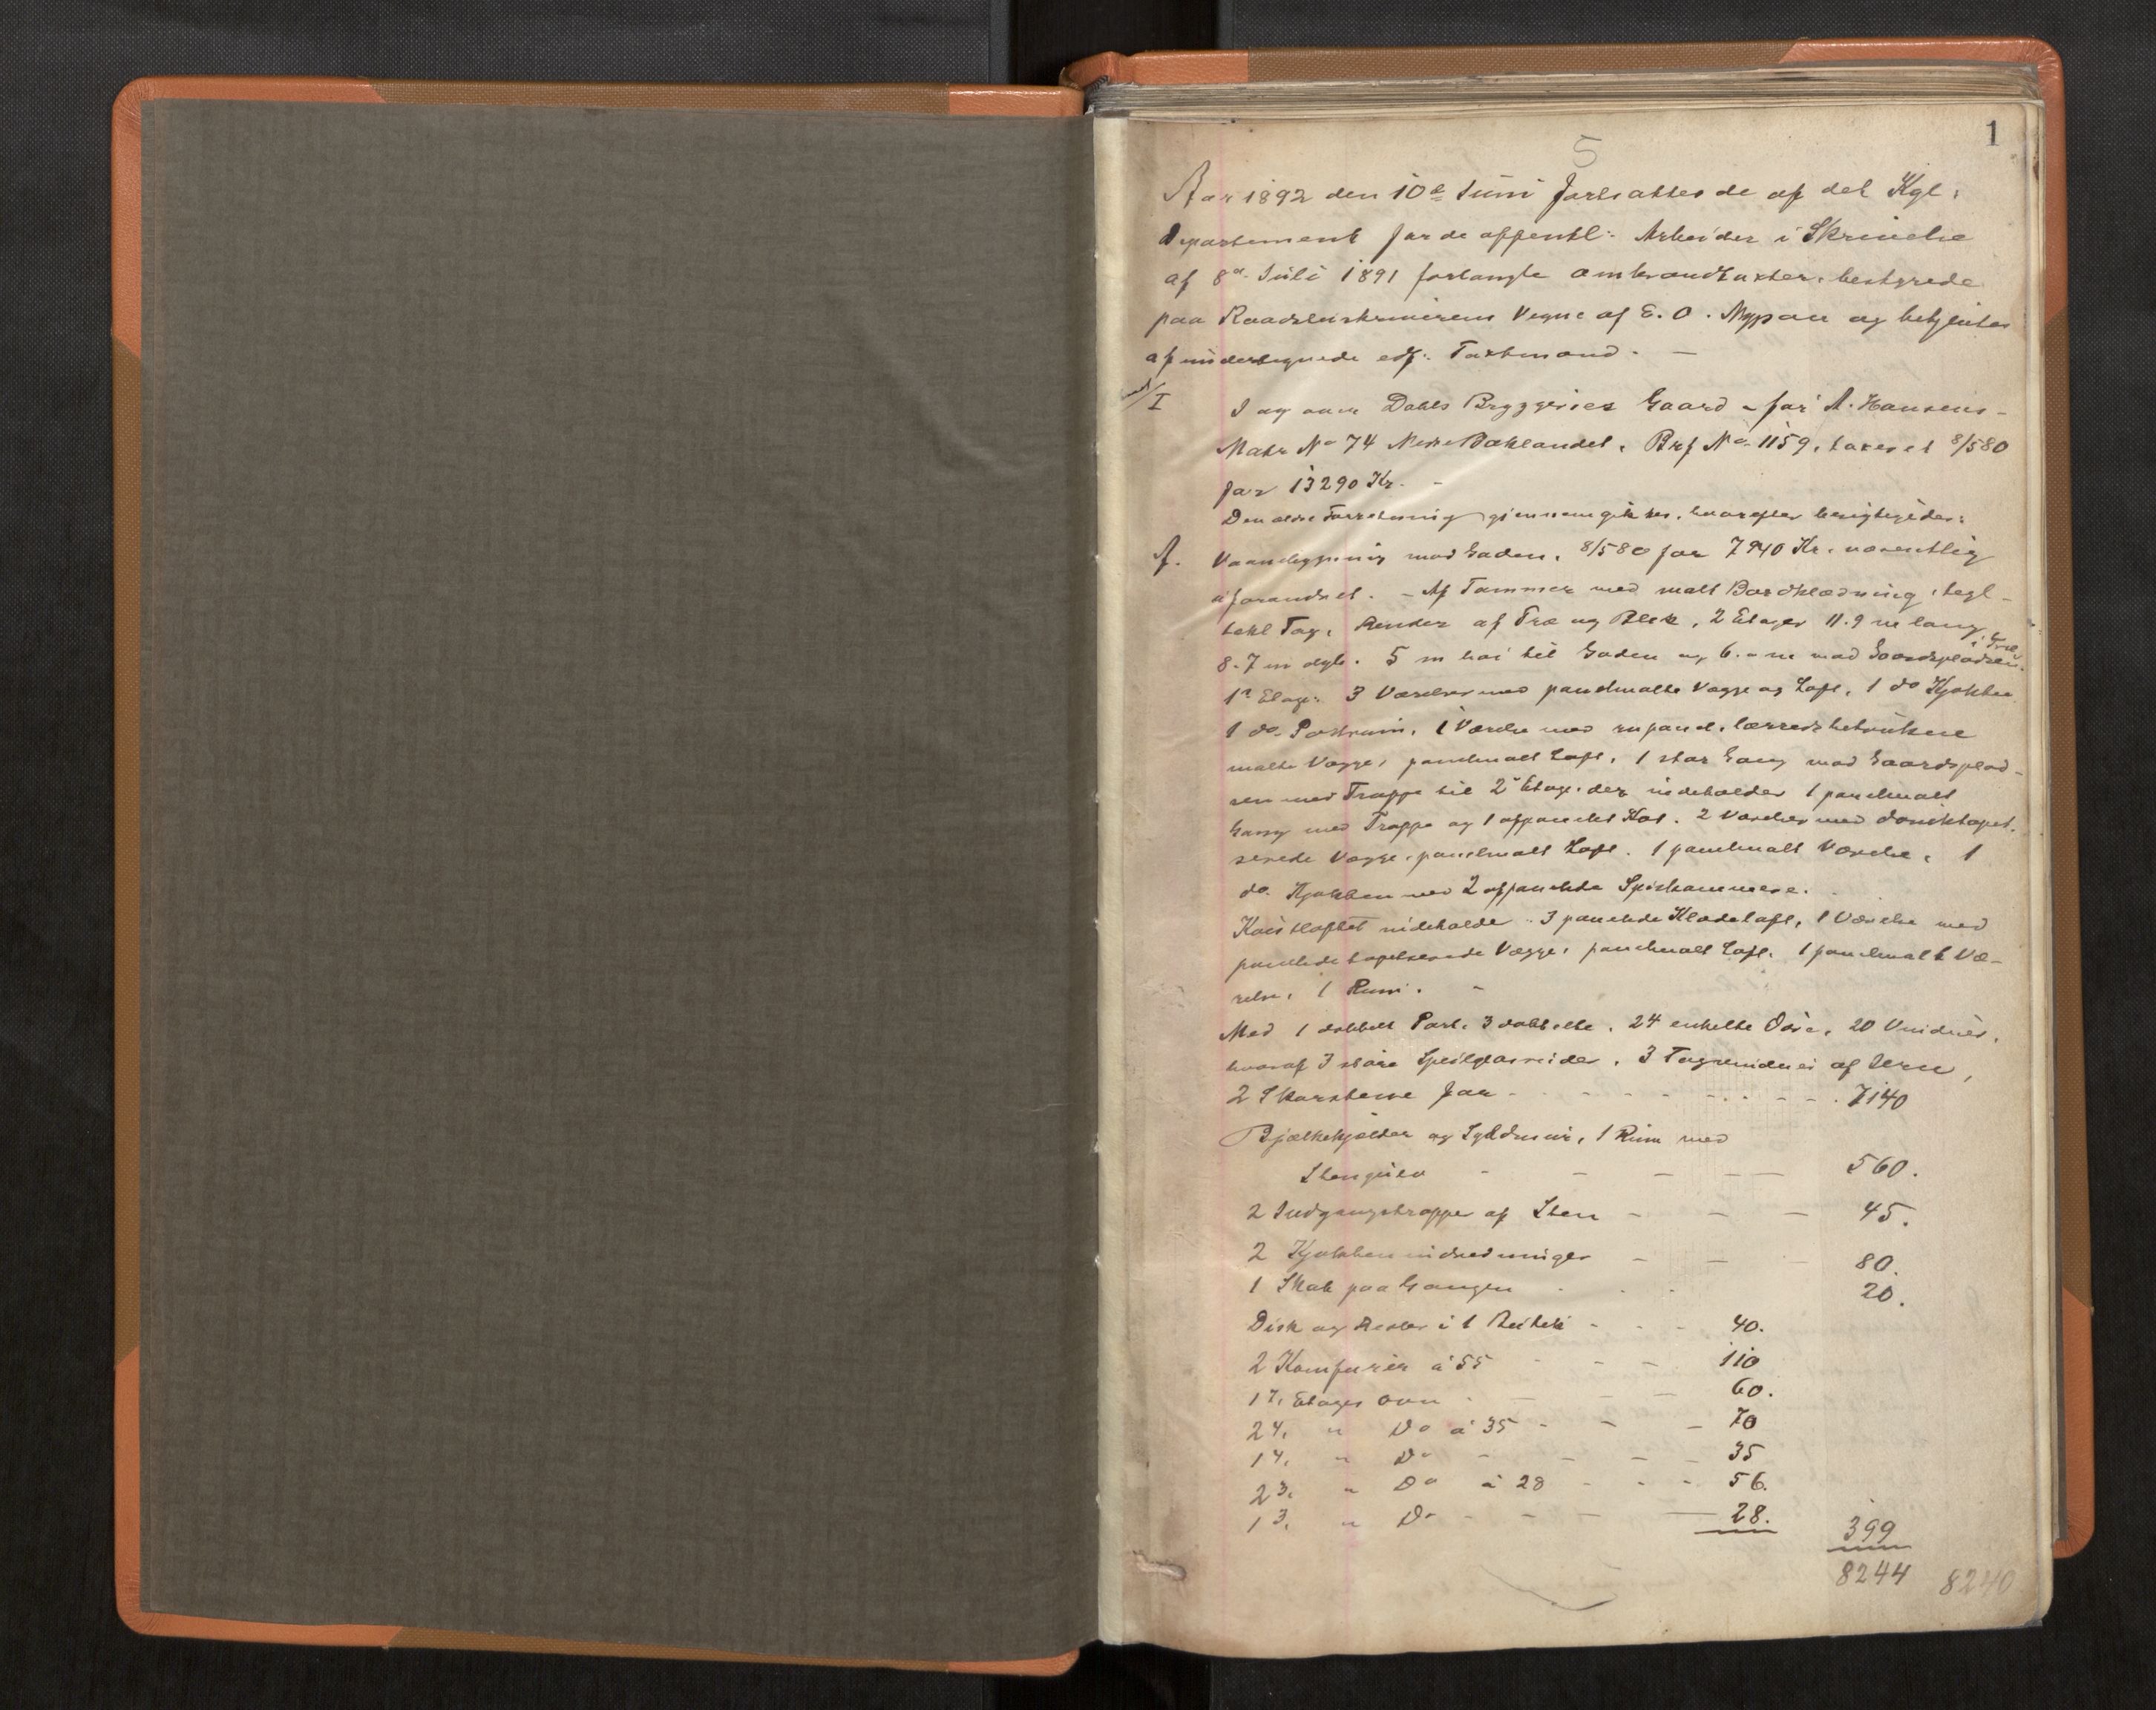 1
5
Aar 1892 den 10de Juni fortsattes de af det Kgl.
Departement for de offentl: Arbeider i Skrivelse
af 8de Juli 1891 forlangte ombrandtaxter, bestyrede
paa Raadstuskriverens Vegne af E. O. Nypan og betjentes
af undertegnede edf: Taxtmænd. —
I
Dahls Bryggeries Gaard – før A. Hansens –
Matr No 74 Nedre Baklandet, Brf No 1159, taxeret 8/5 80
for 13290 Kr. –
Den ældre Forretning gjennemgikkes, hvorefter berigtigedes:
A. Vaaningsbygning mod Gaden, 8/5 80 for 7940 Kr. væsentlig
uforandret. – Af Tømmer med malt Bordklædning, tegl–
tækt Tag, Render af Træ og Blik, 2 Etager 11.9 m lang,
8.7 m dyb. 5 m høi til Gaden og 6. m mod Gaardspladsen.
1e Etage: 3 Værelser med panelmalte Vægge og Loft, 1 do Kjøkken
1 do 1 Værelse med lærredsbetrukne
malte Vægge, panelmalt Loft, 1 stor Gang mod Gaardsplad–
sen med Trappe til 2den Etage, der indeholder 1 panelmalt
Gang med Trappe og 1 afpanelet Kot. 2 Værelser med
serede Vægge, panelmalt Loft. 1 panelmalt Værelse, 1
do. Kjøkken med 2 afpanelede Spiskammere.
Kvistloftet indeholder 3 panelede Klædeloft, 1 Værelse med
panelede tapetserede Vægge, panelmalt Loft. 1 panelmalt Væ–
relse, 1 Rum. –
Med 1 dobbelt Port, 3 dobbelte, 24 enkelte Døre, 20 Vinduer,
hvoraf 3 store Speilglasruder, 3 Tagvinduer af Jern,
2 Skorstene for - - - - - - - - 7140
Bjælkekjelder og Syldmur, 1 Rum med
Stengulv - - - - 560.
2 Indgangstrapper af Sten - - - 45.
2 Kjøkkenindredninger - - - 80.
1 Skab paa Gangen - - - 20.
Disk og Reoler i 1 Butik - - - 40.
2 Komfurer á 55 - - - 110
1 7. Etages Ovn - - - 60.
2 4. " Do á 35 - - - 70
1 4. " Do - - - - 35
2 3. " Do á 28 - - - 56.
1 3. " Do - - - - 28.
399
8244 8240